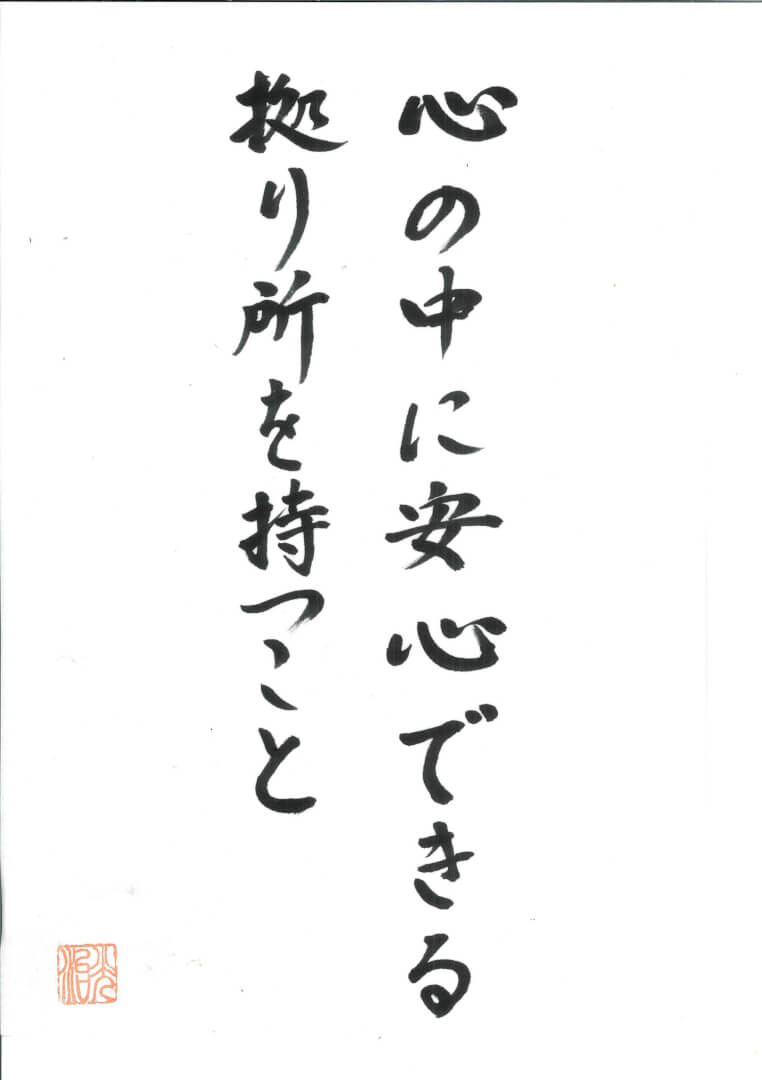 心の中に安心できる
拠り所を持つこと